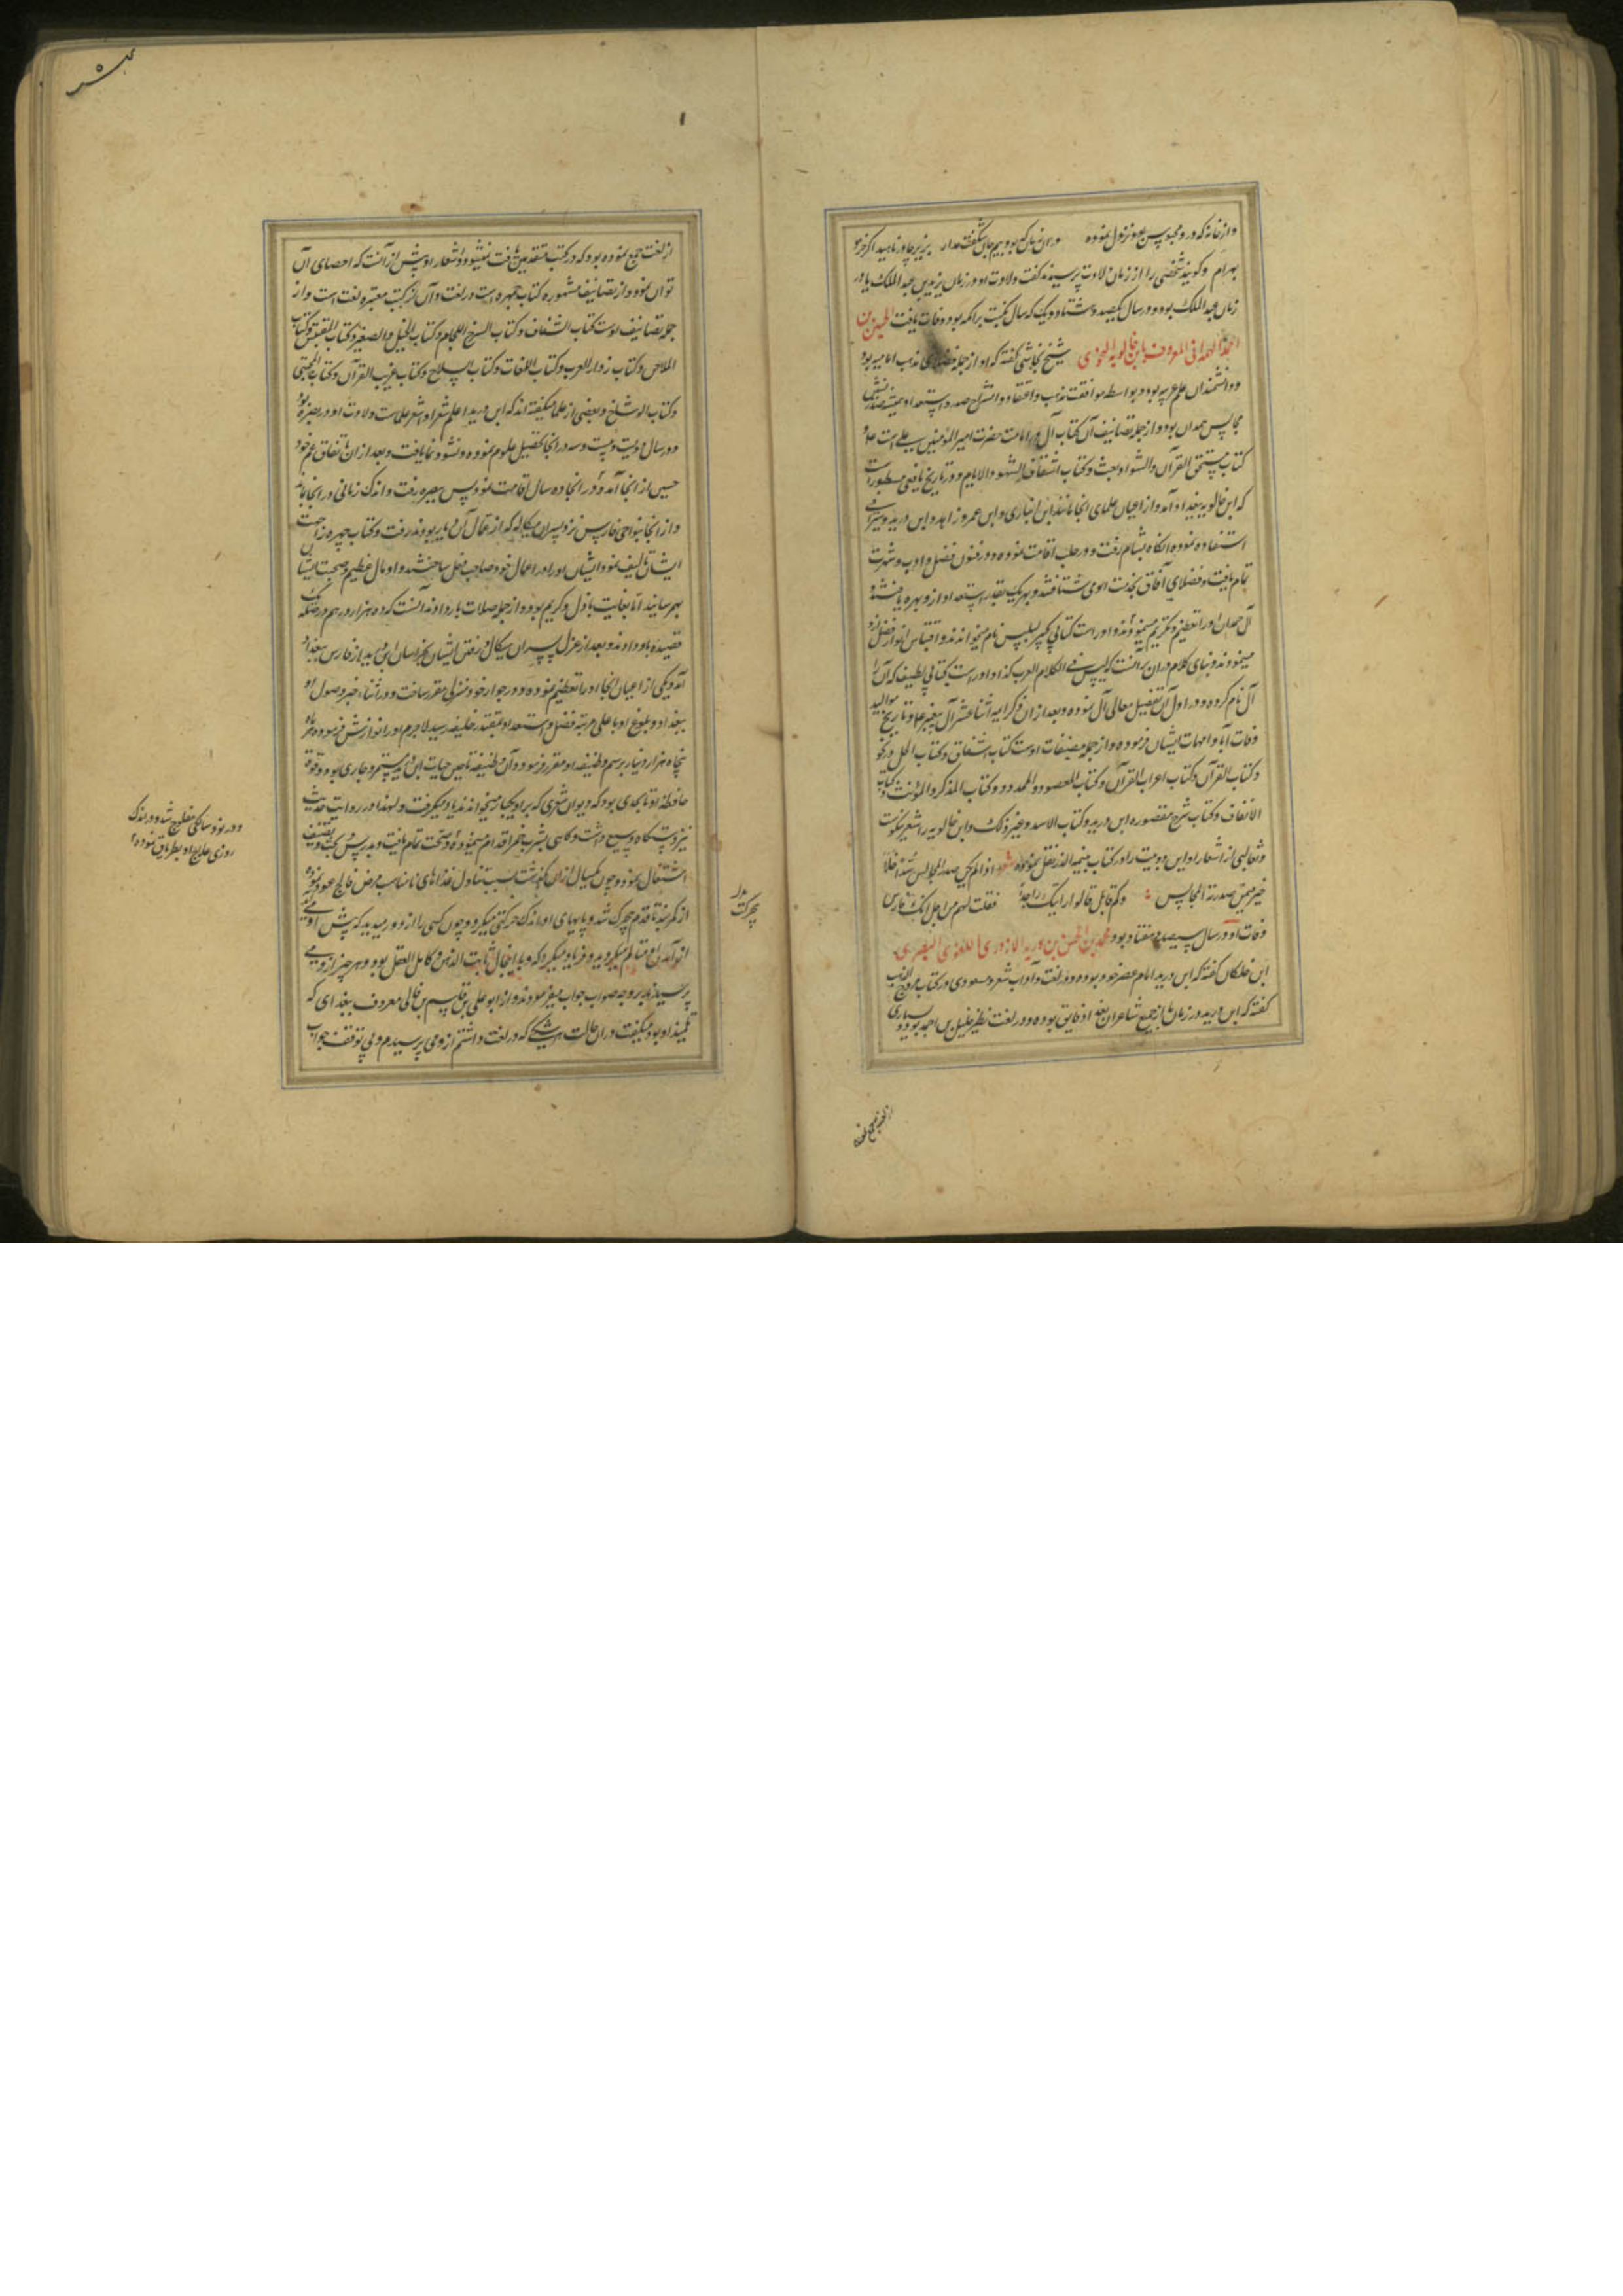 واز خانه که در و محبوس بود نزول نموده
بهرام و گویند شخصی را از زمان ولادت پرسیدند گفت ولادت او در زمان یزید بن عبد الملک یا در
زمان عبد الملک بود و در سال یکصد و هشتاد و یک که سال نکبت برامکه بود وفات یافت الحسین بن
احمد الهمدانی المعروف بابن خالویه النحوی شیخ نجاشی گفته که او از جمله فضلای مذهب امامیه بود
و دانشمندان علم عربیه بود و بواسطه موافقت مذهب و اعتقاد و انشراح صدر و استعداد همیشه صدر نشین
مجالس همدان بود و از جمله تصانیف آن کتاب آل در امامت حضرت امیر المؤمنین علی است و
کتاب مستحق القرآن والشواذ بعث و کتاب اشتقاق الشهور والایام و در تاریخ یافعی مسطور است
که ابن خالویه ببغداد آمد و از اعیان علمای انجا مانند ابن انباری و ابن عمر و زاهد و ابن درید و سیرافی
استفاده نموده انکاه بشام رفت و در حلب اقامت نموده و در فنون فضل و ادب و شهرت
تمام یافت و فضلای آفاق بخدمت او می شتافتند و بهر یک بقدر استعداد از و بهره یافتند و
آل حمدان او را تعظیم و تکریم مینمودند و او راست کتابی کبیر لیس نام میخواندند و اقتباس انوار فضل از او
مینمودند و بنای کلام در ان بر آنست که لیس فی الکلام العرب کذا و او راست کتابی لطیف که آن را
آل نام کرده و در اول آن تفصیل معالی آل نموده و بعد از ان ذکر ایمه اثنا عشر آل پیغمبر علیه و تاریخ موالید
وفات آبا و امهات ایشان فرموده و از جمله مصنفات اوست کتاب اشتقاق و کتاب الجمل در نحو
و کتاب القرآن و کتاب اعراب القرآن و کتاب المقصور و الممدود و کتاب المذکر و المؤنث و کتاب
الالفات و کتاب شرح مقصوره ابن درید و کتاب الاسد و غیر ذلک و ابن خالویه را شعر نیکوست
و ثعالبی از اشعار او این دو بیت را در کتاب یتیمه الدهر نقل نموده شعر اذا لم یکن صدر المجالس سیدا فلا
خیر فیمن صدرته المجالس و کم قایل قالوا رایتک راجلا فقلت لهم من اجل انک فارس
وفات او در سال سیصد و هفتاد بود محمد بن الحسن بن درید الازدی اللغوی البصری
ابن خلکان گفته که ابن درید امام عصر خود بوده و در لغت و آداب شعر و مسعودی در کتاب مروج الذهب
گفته که ابن درید در زمان ما از جمیع شاعران بغداد فایق بوده و در لغت نظیر خلیل بن احمد بود و بسیاری
از لغت جمع نموده
از لغت جمع نموده بود که در کتب متقدمین یافت نمیشود و اشعار او بیش از آنست که احصای آن
توان نمود و از تصانیف مشهوره کتاب جمهره است در لغت و آن از کتب معتبره لغت است و از
جمله تصانیف اوست کتاب اشتقاق و کتاب السرج و اللجام و کتاب الخیل و الصغیر و کتاب المقتبس و کتاب
الملاحن و کتاب زوار العرب و کتاب اللغات و کتاب السلاح و کتاب غریب القرآن و کتاب المجتبی
و کتاب الوشاح و بعضی از علما میگفته اند که ابن درید اعلم شعرا و اشعر علماست ولادت او در بصره بود
در سال دویست و بیست و سه در انجا تحصیل علوم نموده و نشو و نما یافت و بعد از ان باتفاق عم خود
حسین از انجا آمد و در انجا ده سال اقامت نمود پس ببصره رفت و اندک زمانی در انجا بماند
و از انجا بنواحی فارس نزد پسران میکاله که از عمال آن دیار بودند رفت و کتاب جمهره را جهت
ایشان تالیف نمود ایشان او را در اعمال خود صاحب دخل ساختند و او مال عظیم در صحبت ایشان
بهم رسانید اما بغایت باذل و کریم بود و از جمله صلات بار دادند آنست که ده هزار درهم در صله یک
قصیده باو دادند و بعد از عزل پسران میکال و رفتن ایشان بخراسان ابن درید از فارس ببغداد
آمد و یکی از اعیان انجا او را تعظیم نموده و در جوار خود منزلی مقرر ساخت و در اثنا، خبر وصول او
ببغداد و بلوغ او باعلی مرتبه فضل و استعداد بمقتدر خلیفه رسید لاجرم او را نوازش فرمود و هر ماه
پنجاه هزار دینار برسم وظیفه او مقرر فرمود و آن وظیفه تا حین حیات ابن درید مستمر و جاری بود و قوة
حافظه او تا بحدی بود که دیوان شعری که بر او یکبار میخواندند یاد میگرفت و لهذا در روایت حدیث
نیز دستگاه وسیع داشت و کاهی بشرب خمر اقدام مینمود و صحت تمام یافت و بدرس و بحث و تصنیف
اشتغال نمود و چون یکسال از ان گذشت بسبب تناول غذاهای نامناسب مرض فالج عود نموده
از کمر بند تا قدم بیحرکت شد و بپاهای او اندک حرکتی میکرد و چون کسی را از دور میدید که پیش او می آید
از آمدن او متالم میگردید و فریاد میکرد که و با اینحال ثابت الذهن و کامل العقل بود و هر چیز از وی می
پرسیدند بر وجه صواب جواب میفرمودند و از ابو علی بن قاسم بن قالی معروف ببغدادی که
تلمیذ او بود میگفت در ان حالت هر شکی که در لغت داشتم از وی می پرسیدم و بی توقف جواب
بیحرکت
و در نود سالگی مفلوج شد و در اندک
روزی علاج او بطریاق نموده